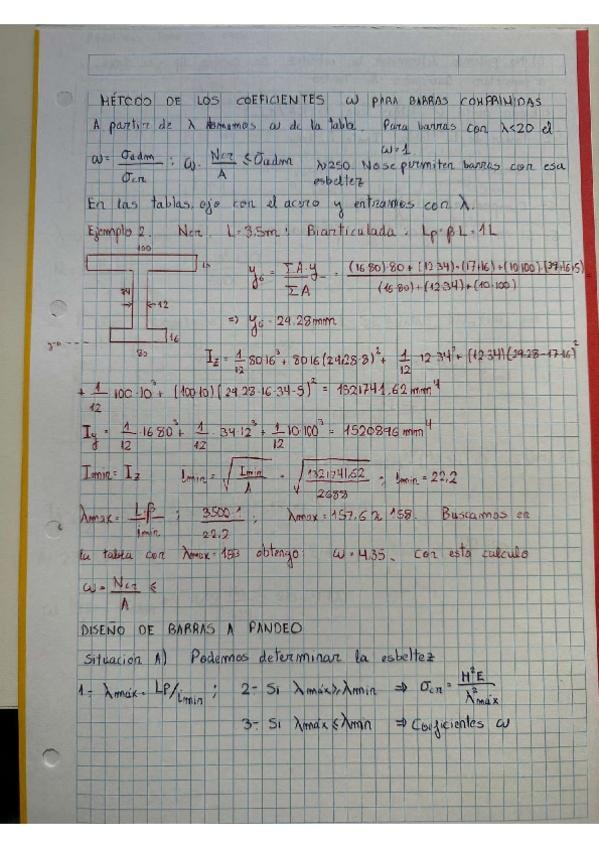 MÉTODO DE LOS COEFICIENTES ω PARA BARRAS COMPRIMIDAS
A partir de λ tomamos ω de la tabla. Para barras con λ<20 el
ω=1
ω = σadm/σcr ; ω · Ncr/A ≤ σadm λ>250. No se permiten barras con esa
esbeltez
En las tablas, ojo con el acero y entramos con λ.
Ejemplo 2. Ncr L=3.5m : Biarticulada : Lp=β L = 1L
100
34 12
16
80
yG = ΣA·y/ΣA = (16·80)·80+(12·34)·(17+16)+(10·100)·(34+16+5)/(16·80)+(12·34)+(10·100)
=> yG = 24.28mm
Iz = 1/12 80·16³ + 80·16(24.28-8)² + 1/12 ·12·34³ + (12·34)(24.28-17-16)²
+ 1/12 ·100·10³ + (100·10)(24.28-16-34-5)² = 1321741,62 mm⁴
Iy = 1/12 ·16·80³ + 1/12 ·34·12³ + 1/12 ·10·100³ = 1520896 mm⁴
Imin = Iz imin = √(Imin/A) = √(1321741,62/2688) ; imin = 22,2
λmax = L·β/imin ; 3500·1/22.2 ; λmax = 157,6 ≈ 158. Buscamos en
la tabla con λmax = 158 obtengo ω = 4.35. Con esto calculo
ω = Ncr/A ≤
DISEÑO DE BARRAS A PANDEO
Situación A) Podemos determinar la esbeltez
1- λmáx = LP/imin ; 2- Si λmáx ≥ λmin ⇒ σcr = π²E/λ²máx
3- Si λmáx ≤ λmin ⇒ Coeficientes ω